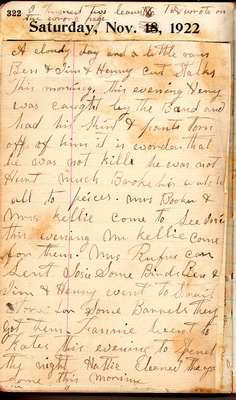 322 I turned two leaves & wrote on
the wrong page
Saturday, Nov. 18, 1922
A cloudy day and a little rain
Ben & Jim & Henny cut Stalks
this morning. this evening Henny
was caught by the Band and
had his Shird & pants torn
off of him it is wonder that
he was not kill he was not
Hurt much Broke his watch
all to peices. Mrs Booker &
Mrs Kellie come to See Josie
this evening Mr Kellie come
for them. Mrs Rufus
Sent Josie Some Birds Ben &
Jim & Henny went to
Store for Some Barrels they
got them Fannie went to
Kates this evening to Spend
the night Hattie Cleaned the
home this morning